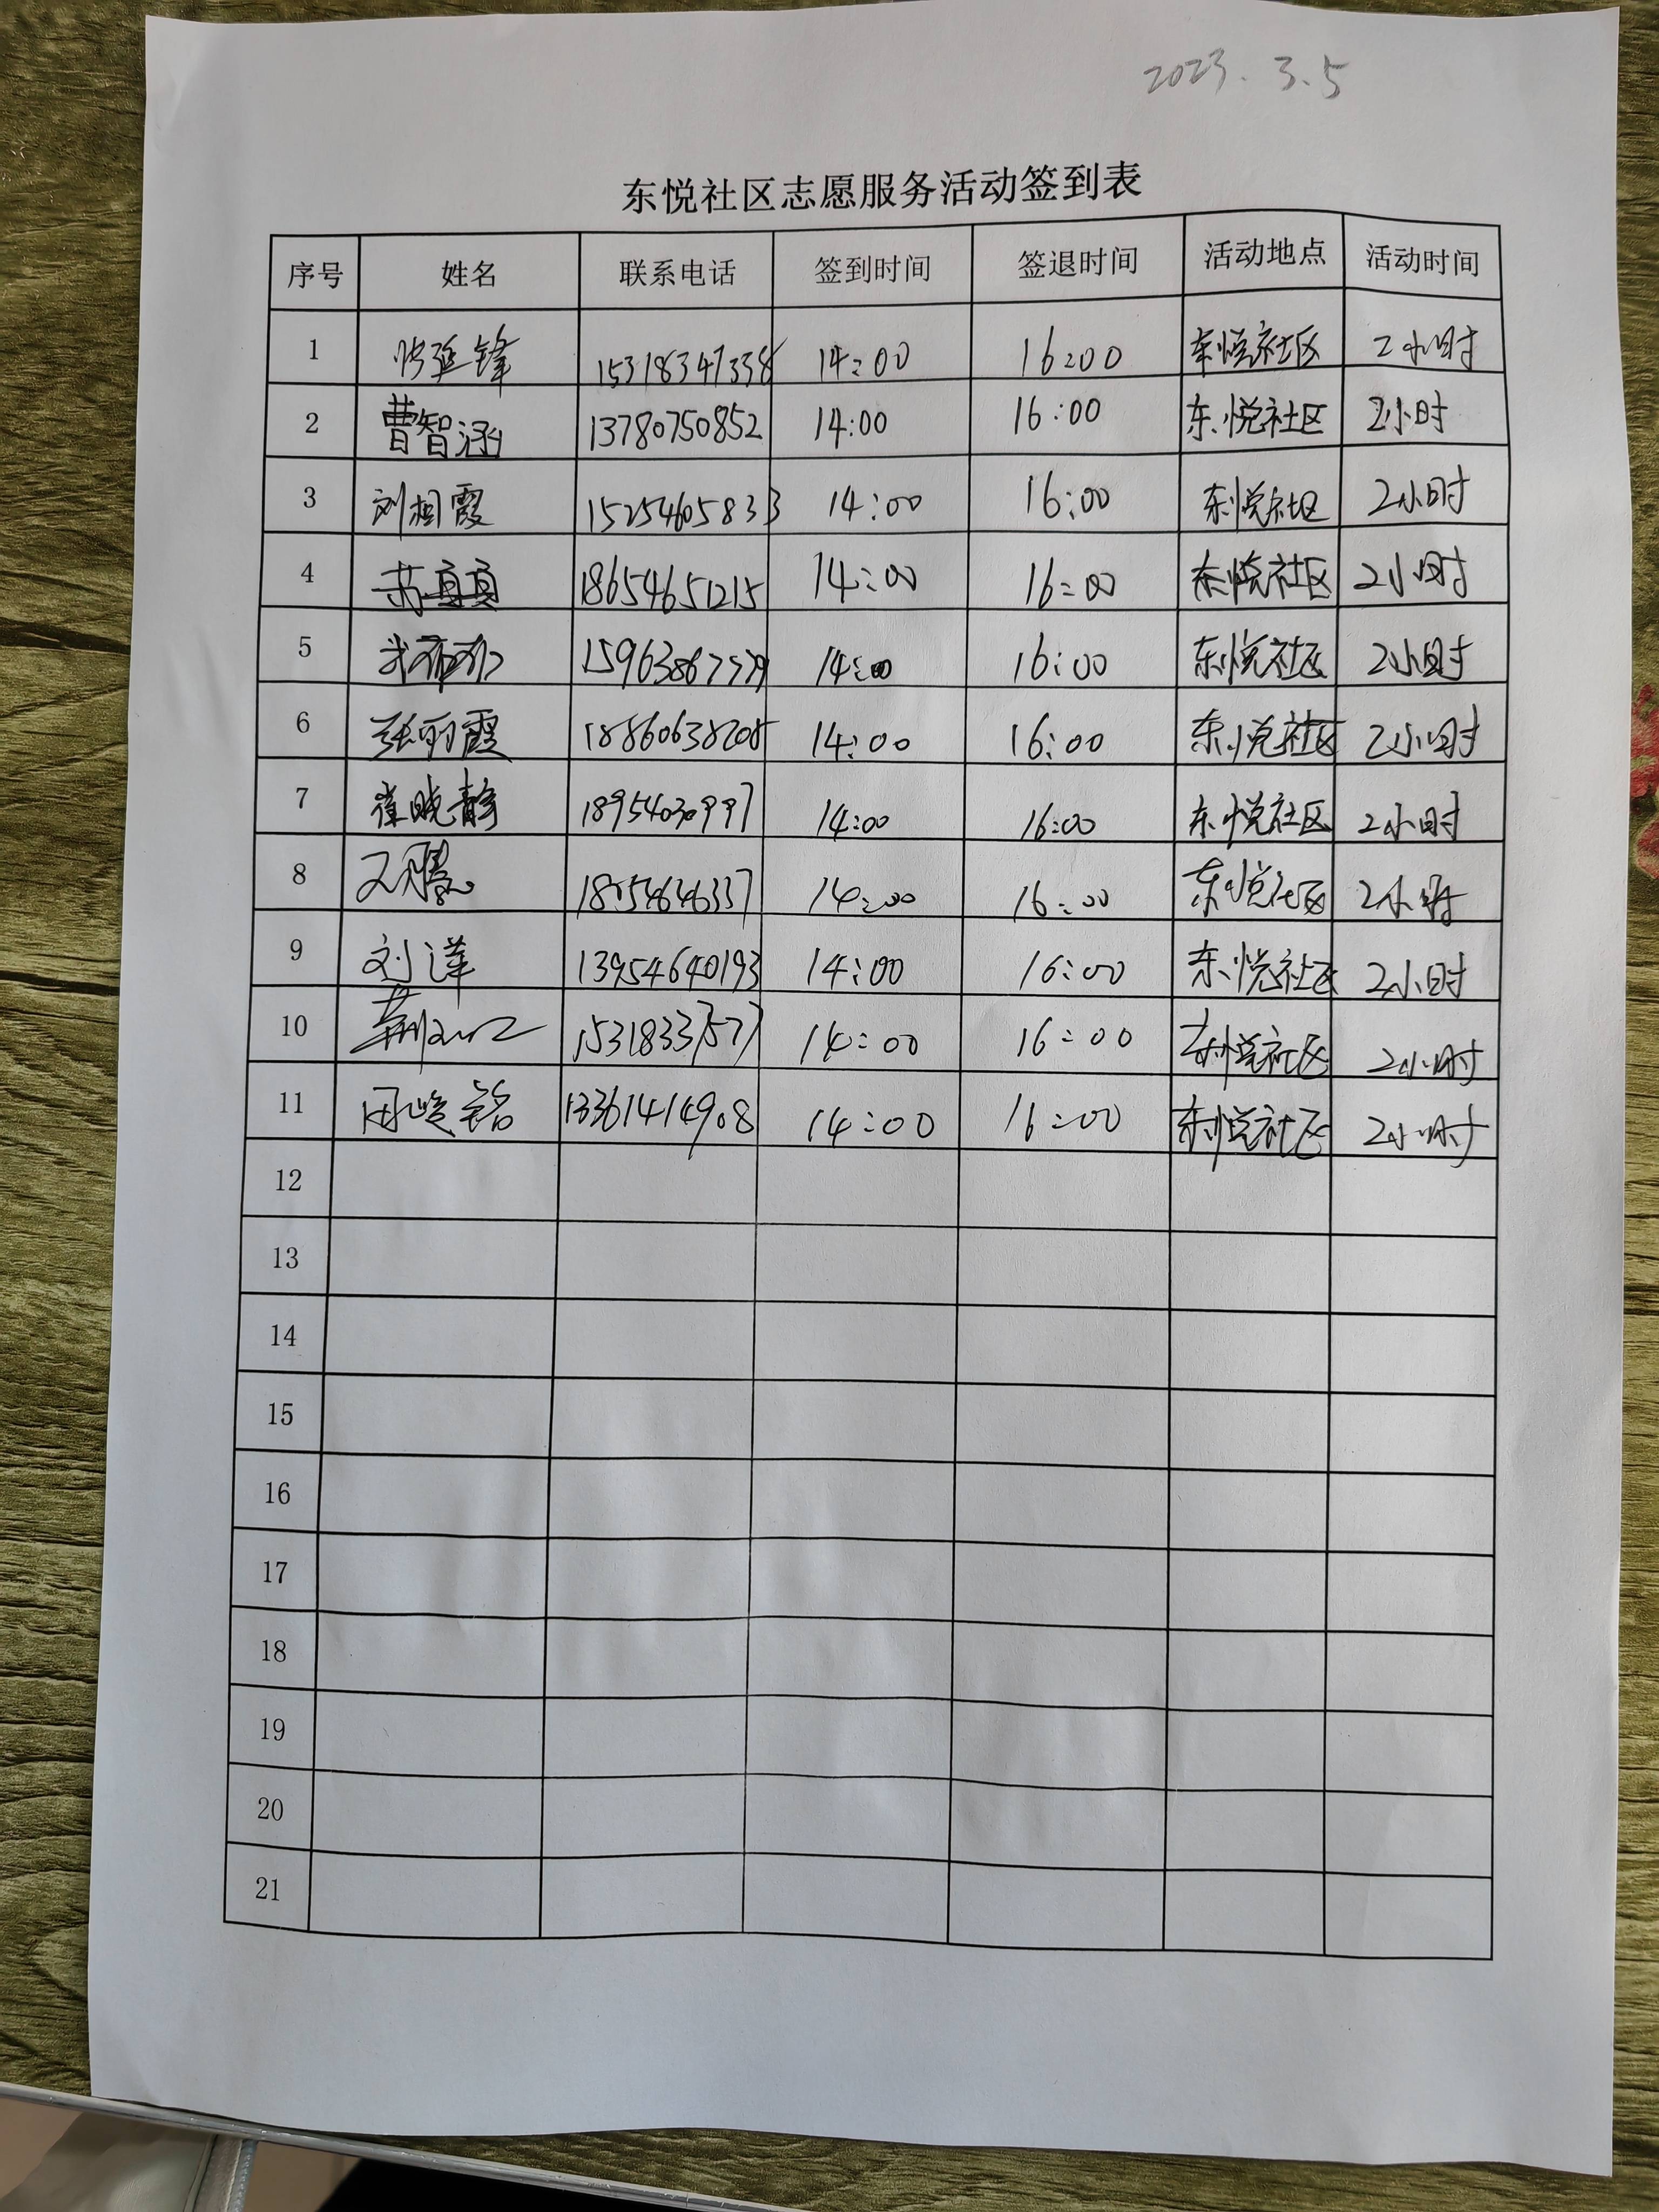 2023.3.5
东悦社区志愿服务活动签到表
序号 姓名 联系电话 签到时间 签退时间 活动地点 活动时间
1 张延锋 15318347338 14:00 16:00 东悦社区 2小时
2 曹智涵 13780750852 14:00 16:00 东悦社区 2小时
3 刘相霞 15254605833 14:00 16:00 东悦社区 2小时
4 苏真真 18654651215 14:00 16:00 东悦社区 2小时
5 14:00 16:00 东悦社区 2小时
6 张丽霞 18860638208 14:00 16:00 东悦社区 2小时
7 崔晓静 18954030997 14:00 16:00 东悦社区 2小时
8 14:00 16:00 东悦社区 2小时
9 刘洋 13954640193 14:00 16:00 东悦社区 2小时
10 15318337577 14:00 16:00 东悦社区 2小时
11 周峻铭 13361414908 14:00 16:00 东悦社区 2小时
12
13
14
15
16
17
18
19
20
21